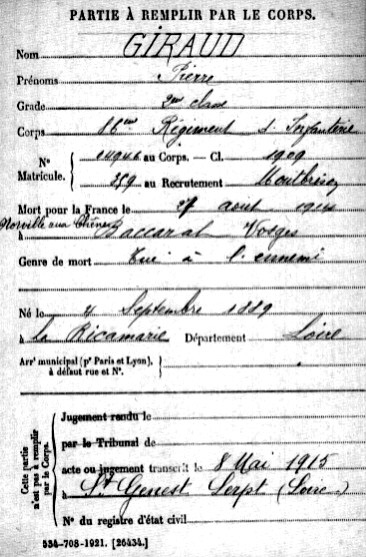 PARTIE À REMPLIR PAR LE CORPS.
Nom GIRAUD
Prénoms Pierre
Grade 2me classe
Corps 16me Régiment d'Infanterie
N° Matricule. 14946 au Corps. — Cl. 1909
359 au Recrutement Montbrison
Mort pour la France le 27 août 1914
Norville aux Chênes
à Baccarat Vosges
Genre de mort Tué à l'ennemi
Né le 4 Septembre 1889
à la Ricamarie Département Loire
Arr¹ municipal (p¹ Paris et Lyon), à défaut rue et N°.
Cette partie n'est pas à remplir par le Corps.
Jugement rendu le
par le Tribunal de
acte ou jugement transcrit le 8 Mai 1915
à St Genest Lerpt (Loire)
N° du registre d'état civil
534-708-1921. [26434.]